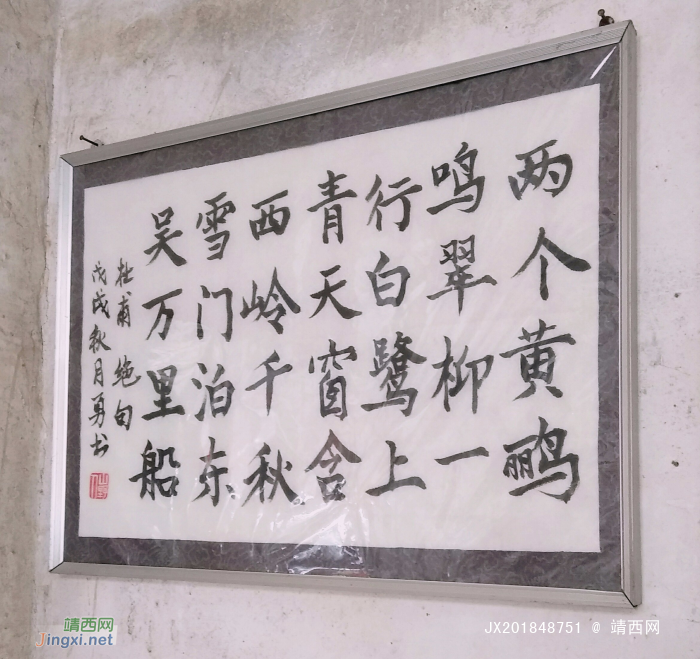 两个黄鹂
鸣翠柳一
行白鹭上
青天窗含
西岭千秋
雪门泊东
吴万里船
杜甫 绝句
戊戌秋月勇书
靖西网
Jingxi.net
JX201848751 @ 靖西网